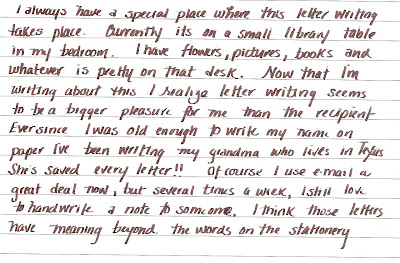 I always have a special place where this letter writing
takes place. Currently its on a small library table
in my bedroom. I have flowers, pictures, books and
whatever is pretty on that desk. Now that I'm
writing about this I realize letter writing seems
to be a bigger pleasure for me than the recipient
Ever since I was old enough to write my name on
paper I've been writing my grandma who lives in Texas
She's saved every letter!! Of course I use e-mail a
great deal now, but several times a week, I still love
to handwrite a note to someone. I think those letters
have meaning beyond the words on the stationery